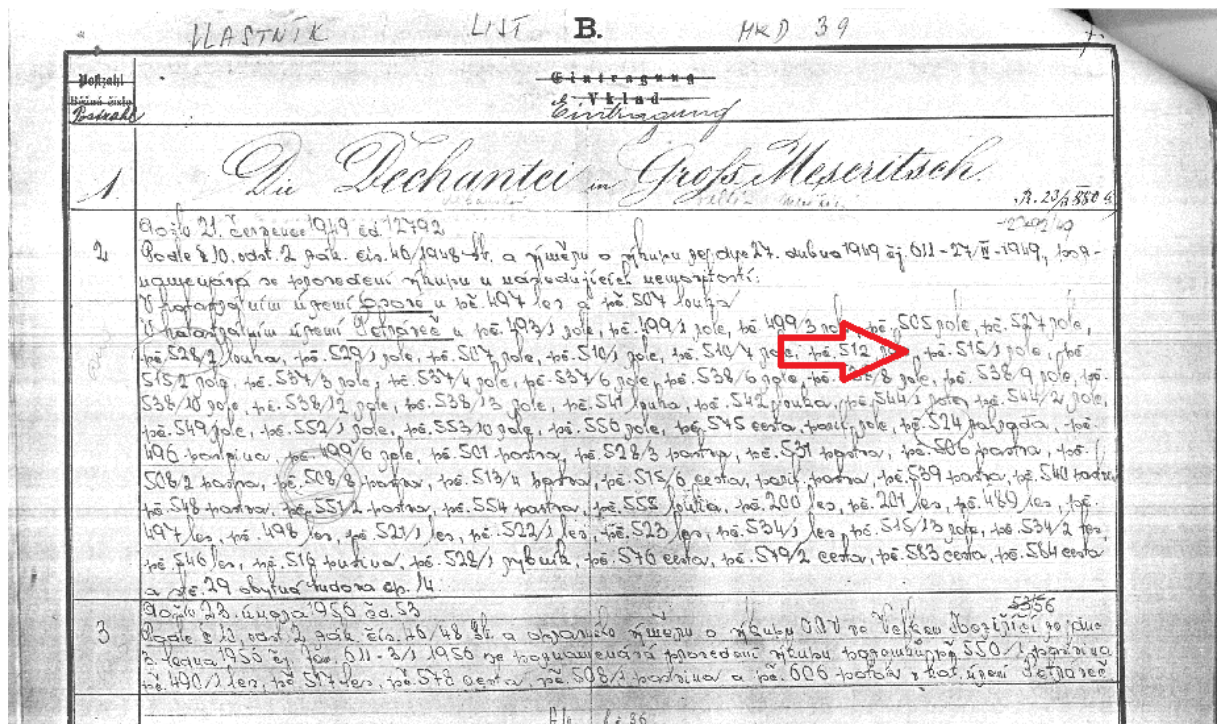 VLASTNÍK LIST B. MKD 39
Postzahl
Eintragung
Vklad
Postzahl
Eintragung
1 Die Dechantei in Groß Meseritsch.
Došlo 21. července 1949 čd. 12792
2 Podle § 10. odst. 2 zák. čís. 46/1948 Sb. a výměru o výkupu ze dne 27. dubna 1949 čj. 611-27/IV-1949, poz-
namenává se provedení výkupu u následujících nemovitostí:
V katastrálním území u pč. 497 les a pč 507 louka
V katastrálním území Petráveč u pč. 493/1 pole, pč. 499/1 pole, pč 499/3 pole, pč. 505 pole, pč. 527 pole,
pč. 528/2 louka, pč. 529/1 pole, pč. 507 pole, pč. 510/1 pole, pč. 510/7 pole, pč. 512 pč. 515/1 pole, pč
515/2 pole, pč. 537/3 pole, pč. 537/4 pole, pč. 537/6 pole, pč. 538/6 pole, pč. 538/8 pole, pč. 538/9 pole, pč.
538/10 pole, pč. 538/12 pole, pč. 538/13 pole, pč. 541 louka, pč. 542 louka, pč. 544/1 pole, pč. 544/2 pole,
pč. 549 pole, pč. 552/1 pole, pč. 553 pole, pč. 556 pole, pč. 575 cesta, pole, pč. 524 zahrada, pč.
496 pastvina, pč. 499/6 pole, pč. 501 pastva, pč. 528/3 pastva, pč. 531 pastva, pč. 506 pastva, pč.
508/2 pastva, pč. 508/8 pastva, pč. 513/4 pastva, pč. 515/6 cesta, pastva, pč. 539 pastva, pč. 540 pastva
pč. 548 pastva, pč. 551/2 pastva, pč. 554 pastva, pč. 555 pč. 200 les, pč. 201 les, pč. 489 les, pč.
497 les, pč. 498 les, pč. 521/1 les, pč. 522/1 les, pč. 523 les, pč. 534/1 les, pč. 515/13 pole, pč. 534/2 les,
pč. 546 les, pč. 516 pč. 528/1 rybník, pč. 576 cesta, pč. 579/2 cesta, pč. 583 cesta, pč. 584 cesta
a 29 obytná budova čp. 14.
Došlo 23. února 1956 čd. 53
3 Podle § 10. odst. 2 zák. čís. 46/48 Sb. a výměru o výkupu ONV ve Velkém Meziříčí ze dne
3. ledna 1956 čj. 611-3/1 1956 se poznamenává provedení výkupu pč 550/1 pastvina
pč. 490/1 les, pč. 517 les, pč. 578 cesta, pč. 598/1 pastvina a pč. 606 potok v kat. území Petráveč